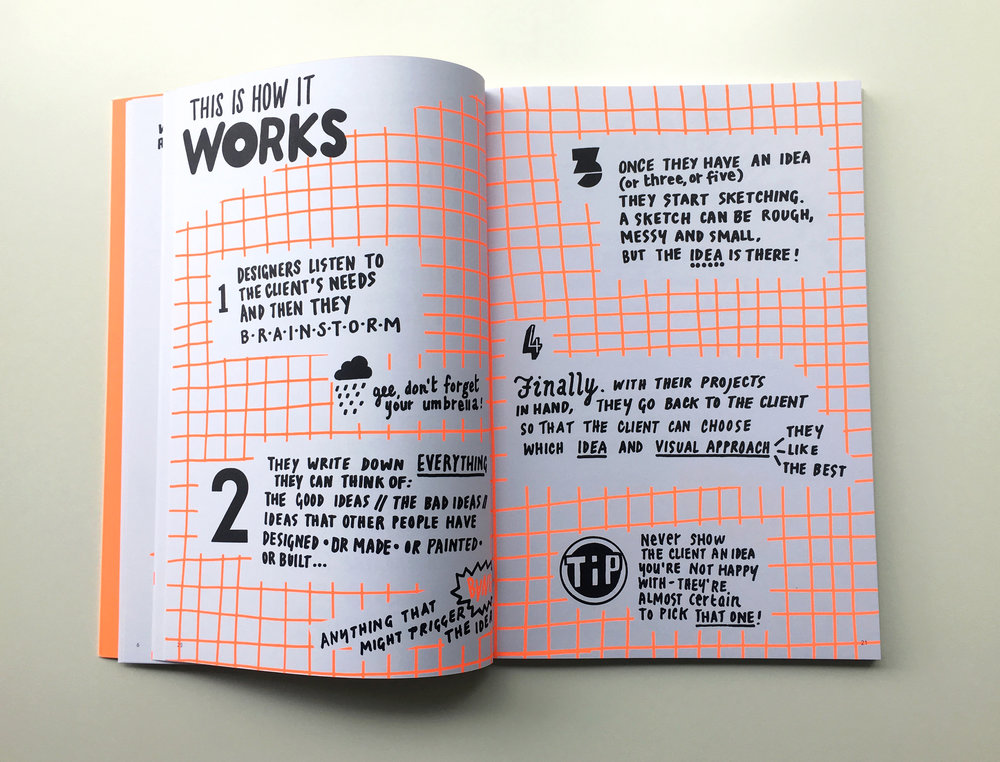 THIS IS HOW IT
WORKS
1
DESIGNERS LISTEN TO
THE CLIENT'S NEEDS
AND THEN THEY
B·R·A·I·N·S·T·O·R·M
gee, don't forget
your umbrella!
2
THEY WRITE DOWN EVERYTHING
THEY CAN THINK OF:
THE GOOD IDEAS // THE BAD IDEAS //
IDEAS THAT OTHER PEOPLE HAVE
DESIGNED • OR MADE • OR PAINTED •
OR BUILT...
ANYTHING THAT
MIGHT TRIGGER
THE IDEA
6
20
3
ONCE THEY HAVE AN IDEA
(or three, or five)
THEY START SKETCHING.
A SKETCH CAN BE ROUGH,
MESSY AND SMALL,
BUT THE IDEA IS THERE!
4
Finally. WITH THEIR PROJECTS
IN HAND, THEY GO BACK TO THE CLIENT
SO THAT THE CLIENT CAN CHOOSE
WHICH IDEA AND VISUAL APPROACH
THEY
LIKE
THE BEST
TIP
Never SHOW
THE CLIENT AN IDEA
YOU'RE NOT HAPPY
WITH - THEY'RE
ALMOST Certain
TO PICK THAT ONE!
21